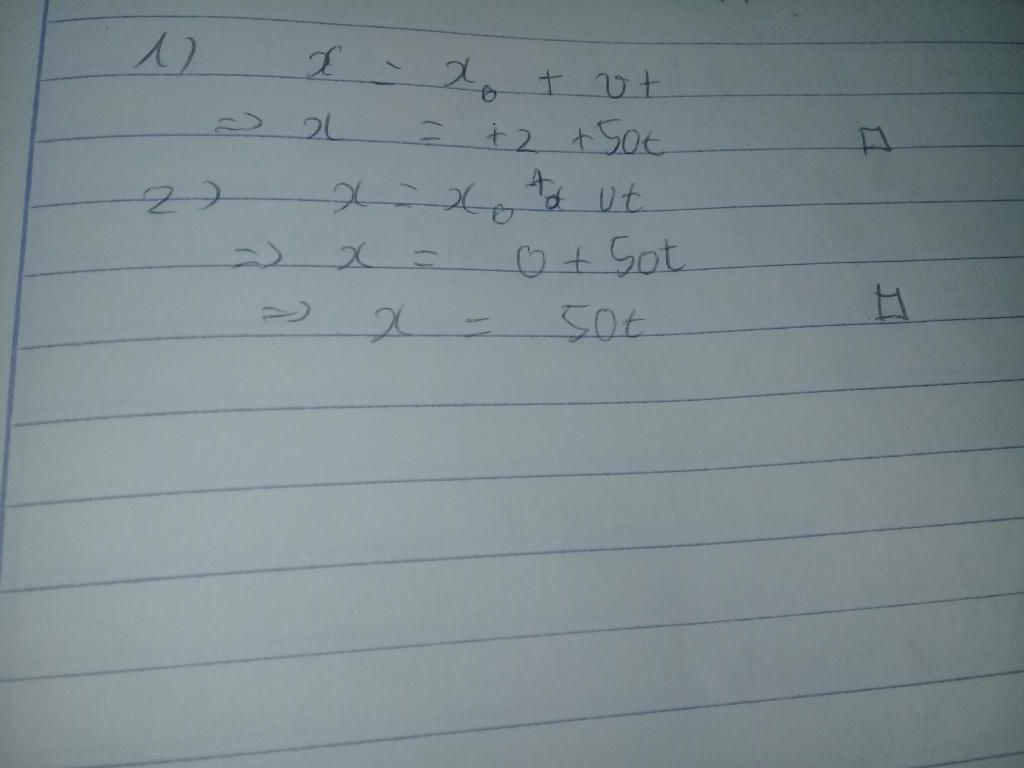 1) x = x₀ + vt
=> x = +2 +50t □
2) x = x₀ + vt
=> x = 0 + 50t
=> x = 50t □